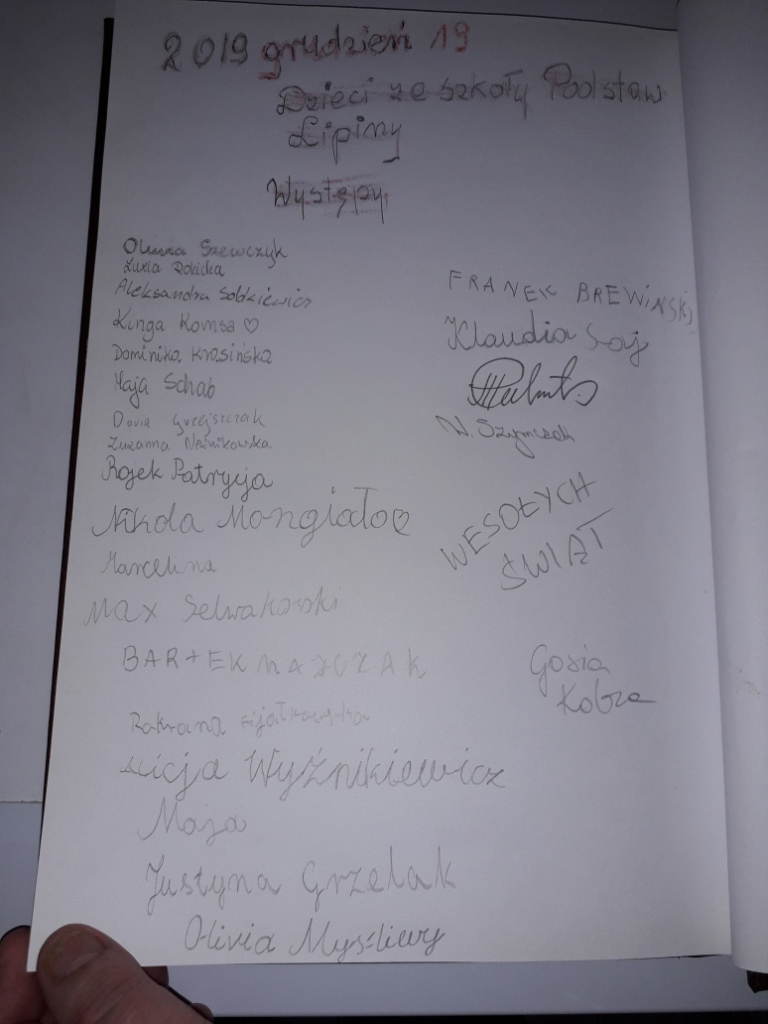 2019 grudzień 19
Dzieci ze szkoły Podstaw
Lipiny
Występy
Oliwia Szewczyk
Zuzia
Aleksandra Sobkiewicz
Kinga Komsa ♡
Dominika Krasińska
Maja Schab
Daria
Zuzanna
Rojek Patrycja
Nikola Mongiało ♡
Marcelina
Max
BARTEK
Wyźnikiewicz
Maja
Justyna Grzelak
Olivia Myśliwy
FRANEK BREWIŃSKI
Klaudia Soj
N. Szymczak
WESOŁYCH
ŚWIĄT
Gosia
Kobza